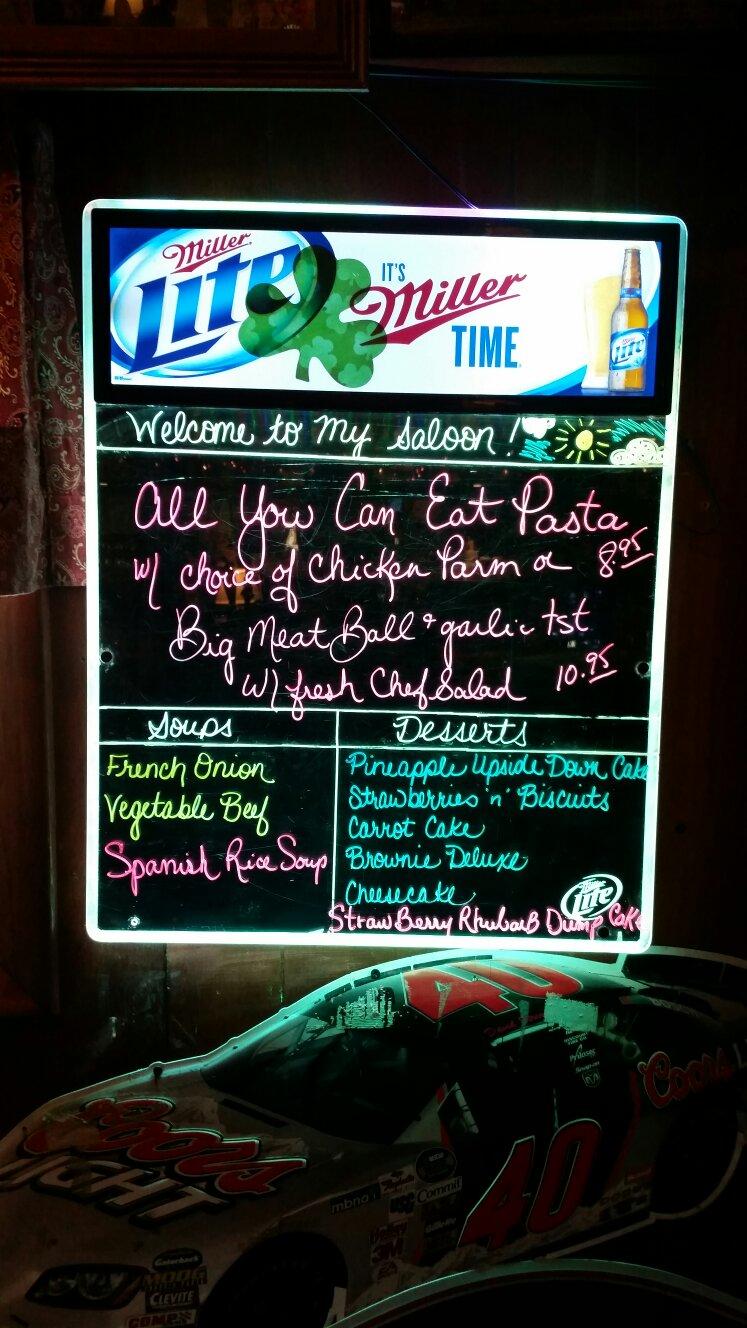 Miller
Lite
IT'S
Miller
TIME
Lite
Welcome to My Saloon!
All You Can Eat Pasta
w/ choice of Chicken Parm or 8.95
Big Meat Ball & garlic tst
w/ fresh Chef Salad 10.95
Soups
French Onion
Vegetable Beef
Spanish Rice Soup
Desserts
Pineapple Upside Down Cake
Strawberries 'n' Biscuits
Carrot Cake
Brownie Deluxe
Cheesecake
StrawBerry RhubarB Dump Cake
Lite
40
Coors
Coors
LIGHT
40
mbna
3M
EA
Gillette
Snap-on
MOOG
CLEVITE